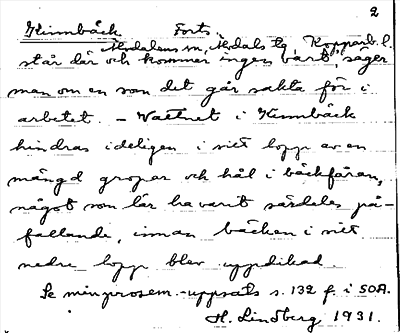 2
Kinnbäck Forts.
Mo socken, Mo tg Kopparb. l.
står där och kommer ingen vart", säger
man om en som det går sakta för i
arbetet. – Vattnet i Kinnbäck
hindras ideligen i sitt lopp av en
mängd gropar och hål i bäckfåran,
något som lär ha varit särdeles på-
fallande, innan bäcken i sitt
nedre lopp blev uppdikad.
Se min prosem.-uppsats s. 132 f. i SOA.
H. Lindberg 1931.